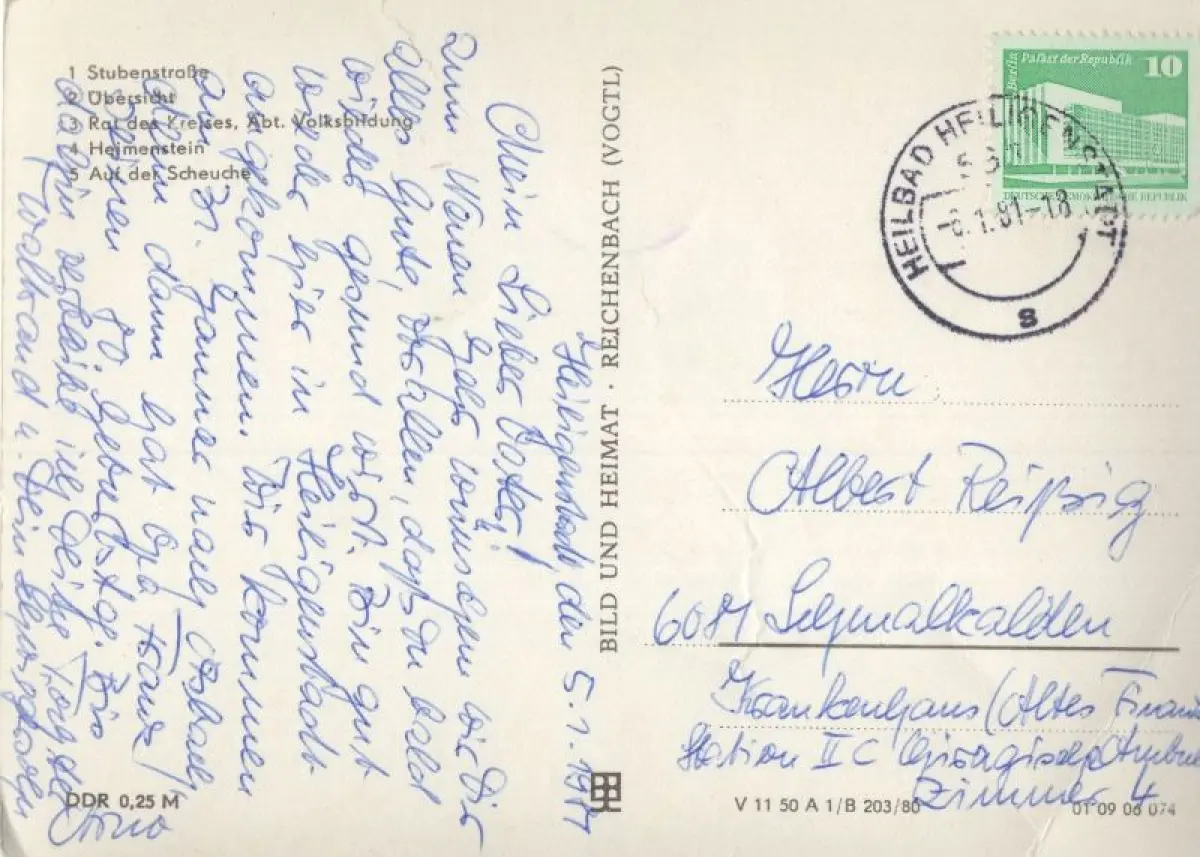 1 Stubenstraße
2 Übersicht
3 Rat des Kreises, Abt. Volksbildung
4 Heimenstein
5 Auf der Scheuche
Heiligenstadt, den 5.1.1981
Mein Lieber Vater!
Zum Neuen Jahr wünschen wir Dir
alles Gute, vor allem, daß Du bald
wieder gesund wirst. Bin gut
wieder hier in Heiligenstadt
angekommen. Wir kommen
am 31. Januar nach Asbach,
denn dann hat Opa
seinen 80. Geburtstag. Bis
dahin verbleibe ich Deine
Waltraud u. Dein
DDR 0,25 M
BILD UND HEIMAT · REICHENBACH (VOGTL)
Berlin Palast der Republik 10
DEUTSCHE DEMOKRATISCHE REPUBLIK
HEILBAD HEILIGENSTADT
-6.1.81-18
s
Herrn
Albert Reißig
6081 Schmalkalden
Krankenhaus (Altes
Station II C Chirurgische
Zimmer 4
V 11 50 A 1/B 203/80
01 09 06 074